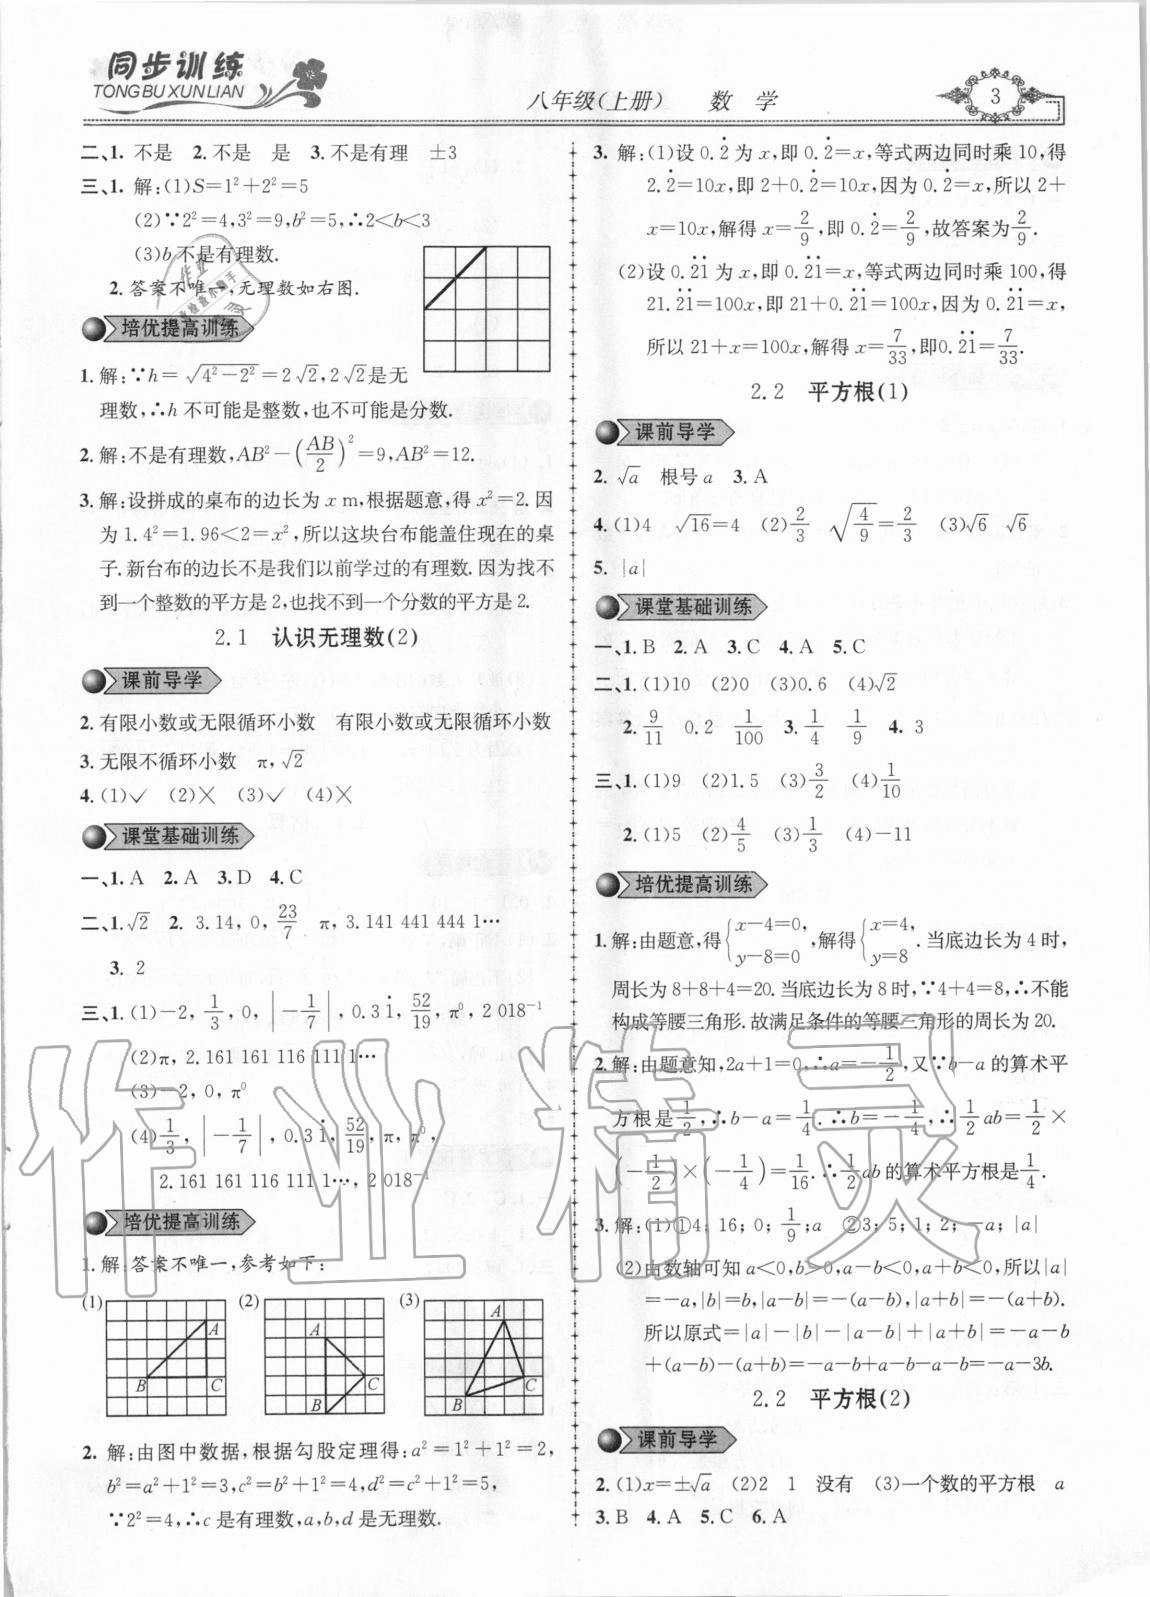 同步训练
TONG BU XUN LIAN
八年级(上册) 数学
3
二、1. 不是 2. 不是 是 3. 不是有理 ±3
三、1. 解:(1)S=1²+2²=5
(2)∵2²=4,3²=9,b²=5,∴2<b<3
(3)b 不是有理数.
2. 答案不唯一,无理数如右图.
培优提高训练
1. 解:∵h=√(4²-2²)=2√2,2√2是无
理数,∴h 不可能是整数,也不可能是分数.
2. 解:不是有理数,AB²-(AB/2)²=9,AB²=12.
3. 解:设拼成的桌布的边长为 x m,根据题意,得 x²=2. 因
为 1.4²=1.96<2=x²,所以这块台布能盖住现在的桌
子. 新台布的边长不是我们以前学过的有理数. 因为找不
到一个整数的平方是 2,也找不到一个分数的平方是 2.
2.1 认识无理数(2)
课前导学
2. 有限小数或无限循环小数 有限小数或无限循环小数
3. 无限不循环小数 π,√2
4. (1)✓ (2)╳ (3)✓ (4)╳
课堂基础训练
一、1. A 2. A 3. D 4. C
二、1. √2 2. 3.14,0,23/7 π,3.141 441 444 1…
3. 2
三、1. (1)-2,1/3,0,|-1/7|,0.3i̇,52/19,π⁰,2 018⁻¹
(2)π,2.161 161 116 111 1…
(3)-2,0,π⁰
(4)1/3,|-1/7|,0.31̇,52/19,π,π⁰,
2.161 161 116 111 1…,2 018⁻¹
培优提高训练
1. 解:答案不唯一,参考如下:
(1) (2) (3)
A B C A B C A B C
2. 解:由图中数据,根据勾股定理得:a²=1²+1²=2,
b²=a²+1²=3,c²=b²+1²=4,d²=c²+1²=5,
∵2²=4,∴c 是有理数,a,b,d 是无理数.
3. 解:(1)设 0.2̇ 为 x,即 0.2̇=x,等式两边同时乘 10,得
2.2̇=10x,即 2+0.2̇=10x,因为 0.2̇=x,所以 2+
x=10x,解得 x=2/9,即 0.2̇=2/9,故答案为2/9.
(2)设 0.2̇1̇ 为 x,即 0.2̇1̇=x,等式两边同时乘 100,得
21.2̇1̇=100x,即 21+0.2̇1̇=100x,因为 0.2̇1̇=x,
所以 21+x=100x,解得 x=7/33,即0.2̇1̇=7/33.
2.2 平方根(1)
课前导学
2. √a 根号 a 3. A
4. (1)4 √16=4 (2)2/3 √(4/9)=2/3 (3)√6 √6
5. |a|
课堂基础训练
一、1. B 2. A 3. C 4. A 5. C
二、1. (1)10 (2)0 (3)0.6 (4)√2
2. 9/11 0.2 1/100 3. 1/4 1/9 4. 3
三、1. (1)9 (2)1.5 (3)3/2 (4)1/10
2. (1)5 (2)4/5 (3)1/3 (4)-11
培优提高训练
1. 解:由题意,得{x-4=0, y-8=0,解得{x=4, y=8. 当底边长为 4 时,
周长为 8+8+4=20. 当底边长为 8 时,∵4+4=8,∴不能
构成等腰三角形. 故满足条件的等腰三角形的周长为 20.
2. 解:由题意知,2a+1=0,∴a=-1/2,又∵b-a 的算术平
方根是1/2,∴b-a=1/4. ∴b=-1/4,∴1/2ab=1/2×
(-1/2)×(-1/4)=1/16. ∴1/2ab 的算术平方根是1/4.
3. 解:(1)①4;16;0;1/9;a ②3;5;1;2;-a;|a|
(2)由数轴可知 a<0,b>0,a-b<0,a+b<0,所以|a|
=-a,|b|=b,|a-b|=-(a-b),|a+b|=-(a+b).
所以原式=|a|-|b|-|a-b|+|a+b|=-a-b
+(a-b)-(a+b)=-a-b+a-b-a-b=-a-3b.
2.2 平方根(2)
课前导学
2. (1)x=±√a (2)2 1 没有 (3)一个数的平方根 a
3. B 4. A 5. C 6. A
作业精灵